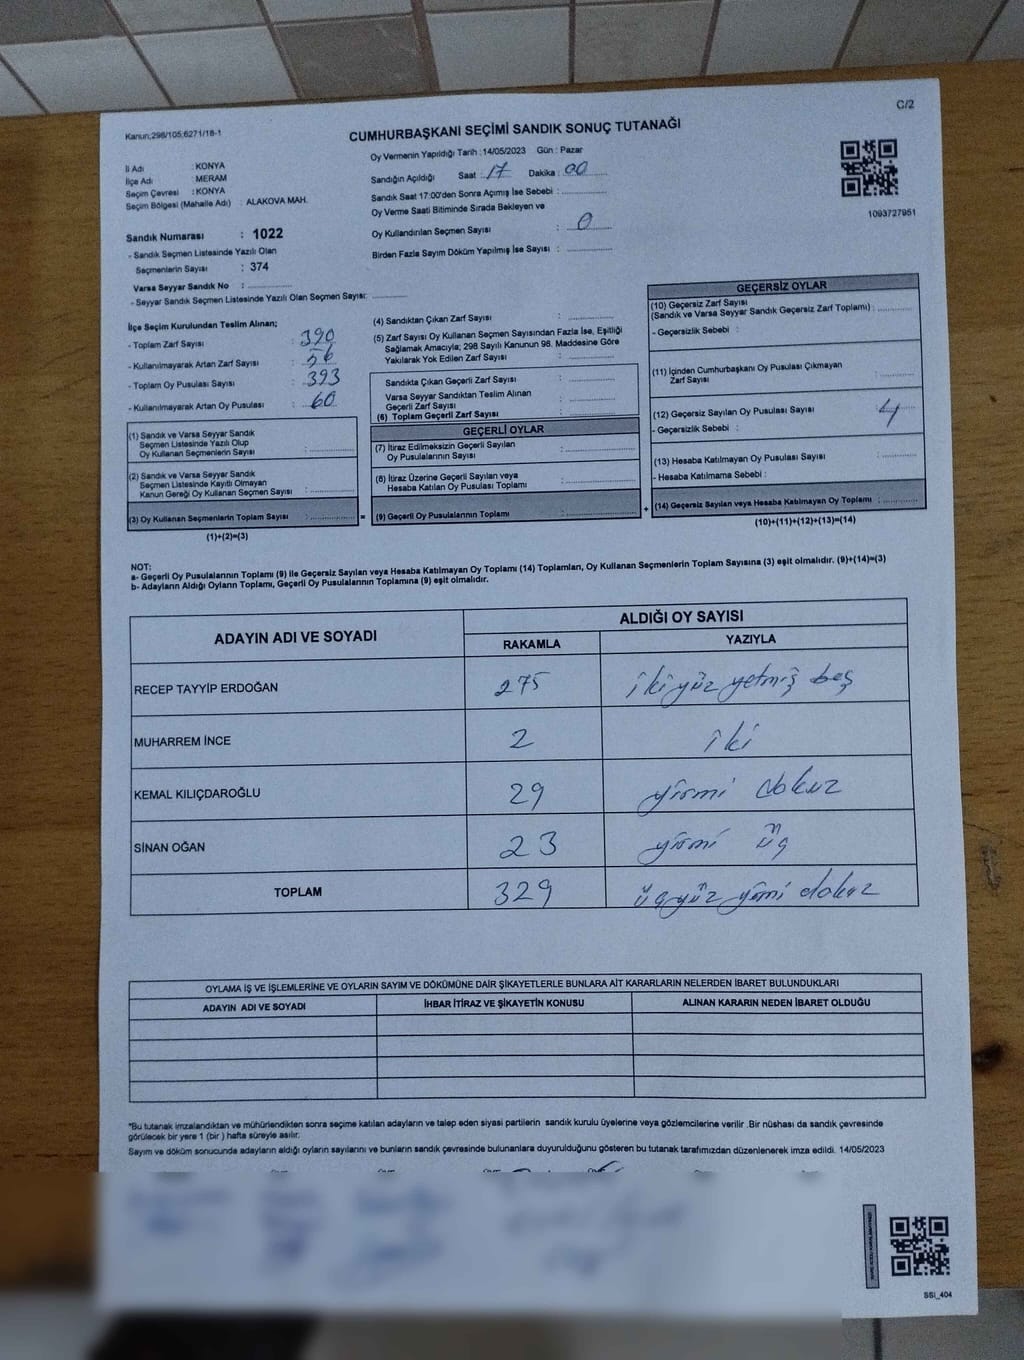 C/2
Kanun;298/105;6271/18-1
CUMHURBAŞKANI SEÇİMİ SANDIK SONUÇ TUTANAĞI
İl Adı : KONYA
İlçe Adı : MERAM
Seçim Çevresi : KONYA
Seçim Bölgesi (Mahalle Adı) : ALAKOVA MAH.
Oy Vermenin Yapıldığı Tarih :14/05/2023 Gün : Pazar
Sandığın Açıldığı Saat : 17 Dakika : 00
Sandık Saat 17:00'den Sonra Açımış İse Sebebi :
Oy Verme Saati Bitiminde Sırada Bekleyen ve
Oy Kullandırılan Seçmen Sayısı : 0
Birden Fazla Sayım Döküm Yapılmış İse Sayısı :
1093727951
Sandık Numarası : 1022
- Sandık Seçmen Listesinde Yazılı Olan
Seçmenlerin Sayısı : 374
Varsa Seyyar Sandık No :
- Seyyar Sandık Seçmen Listesinde Yazılı Olan Seçmen Sayısı:
İlçe Seçim Kurulundan Teslim Alınan;
- Toplam Zarf Sayısı : 390
- Kullanılmayarak Artan Zarf Sayısı : 56
- Toplam Oy Pusulası Sayısı : 393
- Kullanılmayarak Artan Oy Pusulası : 60
(1) Sandık ve Varsa Seyyar Sandık
Seçmen Listesinde Yazılı Olup
Oy Kullanan Seçmenlerin Sayısı :
(2) Sandık ve Varsa Seyyar Sandık
Seçmen Listesinde Kayıtlı Olmayan
Kanun Gereği Oy Kullanan Seçmen Sayısı :
(3) Oy Kullanan Seçmenlerin Toplam Sayısı : =
(1)+(2)=(3)
(4) Sandıktan Çıkan Zarf Sayısı :
(5) Zarf Sayısı Oy Kullanan Seçmen Sayısından Fazla İse, Eşitliği
Sağlamak Amacıyla; 298 Sayılı Kanunun 98. Maddesine Göre
Yakılarak Yok Edilen Zarf Sayısı :
Sandıkta Çıkan Geçerli Zarf Sayısı :
Varsa Seyyar Sandıktan Teslim Alınan
Geçerli Zarf Sayısı :
(6) Toplam Geçerli Zarf Sayısı :
GEÇERLİ OYLAR
(7) İtiraz Edilmeksizin Geçerli Sayılan
Oy Pusulalarının Sayısı :
(8) İtiraz Üzerine Geçerli Sayılan veya
Hesaba Katılan Oy Pusulası Toplamı :
(9) Geçerli Oy Pusulalarının Toplamı : +
GEÇERSİZ OYLAR
(10) Geçersiz Zarf Sayısı
(Sandık ve Varsa Seyyar Sandık Geçersiz Zarf Toplamı) :
- Geçersizlik Sebebi :
(11) İçinden Cumhurbaşkanı Oy Pusulası Çıkmayan
Zarf Sayısı :
(12) Geçersiz Sayılan Oy Pusulası Sayısı : 4
- Geçersizlik Sebebi :
(13) Hesaba Katılmayan Oy Pusulası Sayısı :
- Hesaba Katılmama Sebebi :
(14) Geçersiz Sayılan veya Hesaba Katılmayan Oy Toplamı :
(10)+(11)+(12)+(13)=(14)
NOT:
a- Geçerli Oy Pusulalarının Toplamı (9) ile Geçersiz Sayılan veya Hesaba Katılmayan Oy Toplamı (14) Toplamları, Oy Kullanan Seçmenlerin Toplam Sayısına (3) eşit olmalıdır. (9)+(14)=(3)
b- Adayların Aldığı Oyların Toplamı, Geçerli Oy Pusulalarının Toplamına (9) eşit olmalıdır.
ADAYIN ADI VE SOYADI
ALDIĞI OY SAYISI
RAKAMLA YAZIYLA
RECEP TAYYİP ERDOĞAN 275 iki yüz yetmiş beş
MUHARREM İNCE 2 iki
KEMAL KILIÇDAROĞLU 29 yirmi dokuz
SİNAN OĞAN 23 yirmi üç
TOPLAM 329 üçyüz yirmi dokuz
OYLAMA İŞ VE İŞLEMLERİNE VE OYLARIN SAYIM VE DÖKÜMÜNE DAİR ŞİKAYETLERLE BUNLARA AİT KARARLARIN NELERDEN İBARET BULUNDUKLARI
ADAYIN ADI VE SOYADI İHBAR İTİRAZ VE ŞİKAYETİN KONUSU ALINAN KARARIN NEDEN İBARET OLDUĞU
*Bu tutanak imzalandıktan ve mühürlendikten sonra seçime katılan adayların ve talep eden siyasi partilerin sandık kurulu üyelerine veya gözlemcilerine verilir .Bir nüshası da sandık çevresinde
görülecek bir yere 1 (bir ) hafta süreyle asılır.
Sayım ve döküm sonucunda adayların aldığı oyların sayılarını ve bunların sandık çevresinde bulunanlara duyurulduğunu gösteren bu tutanak tarafımızdan düzenlenerek imza edildi. 14/05/2023
SSİ_404